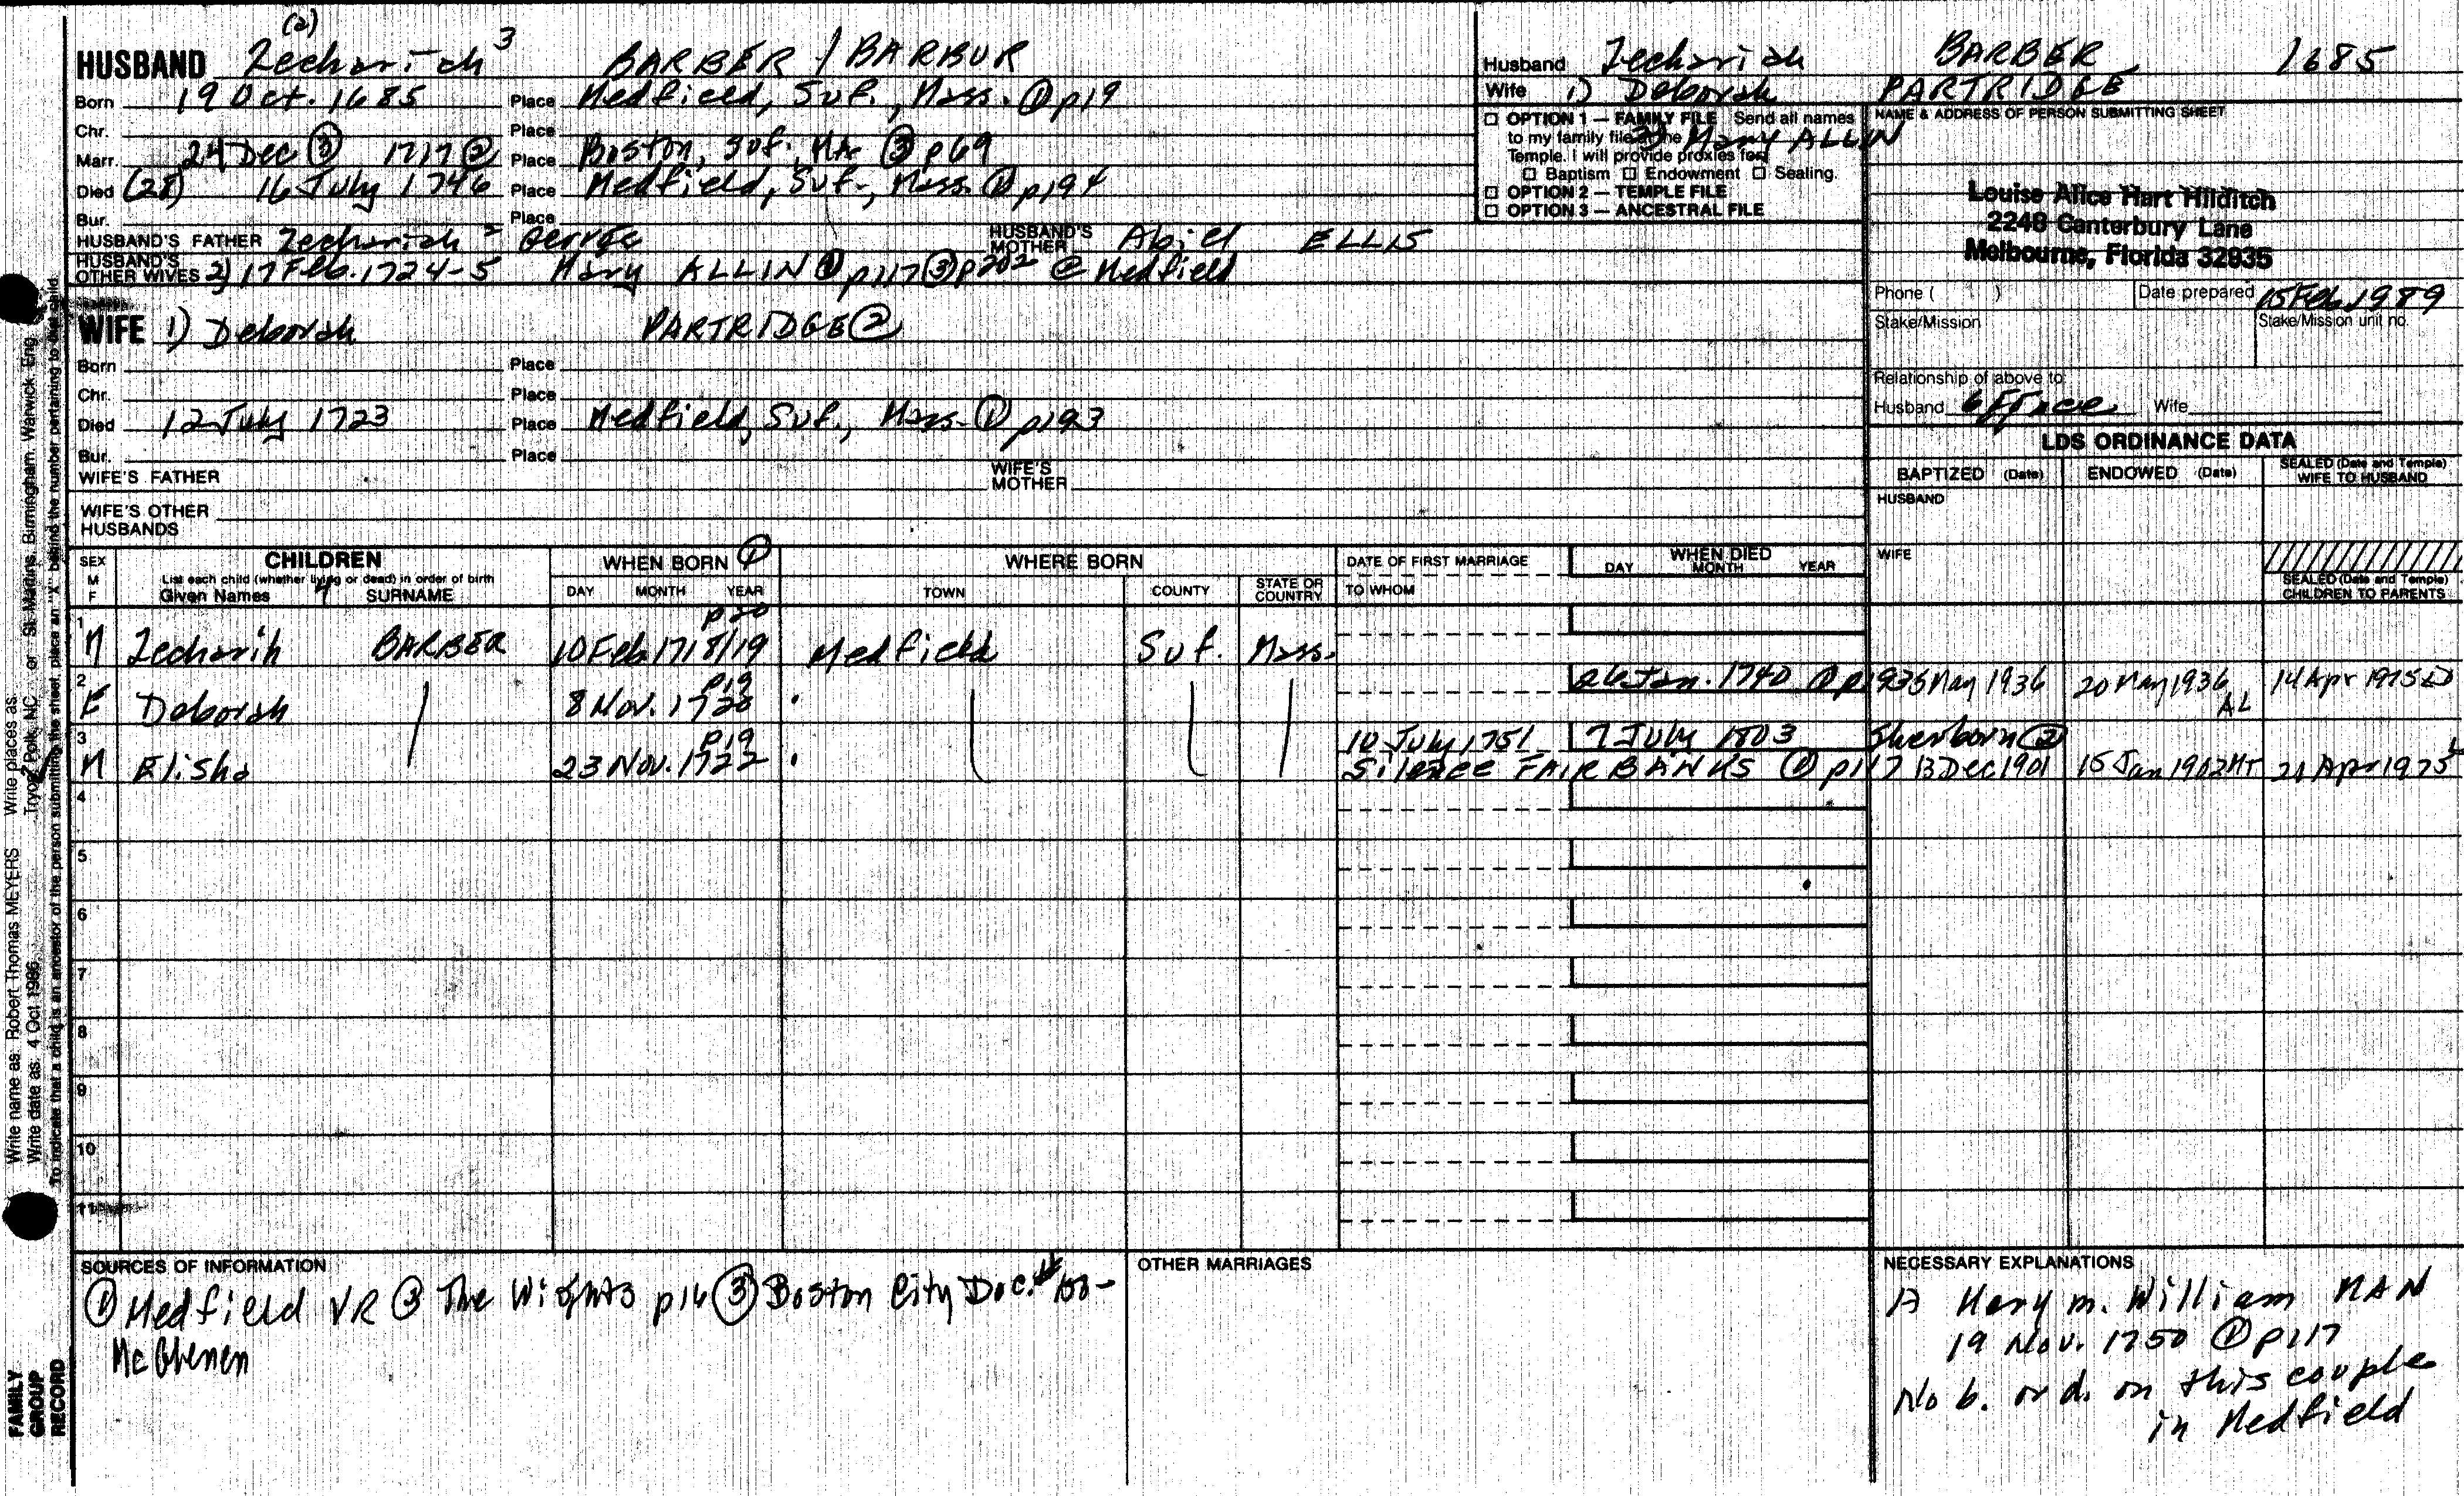 (2)
HUSBAND Zechariah 3 BARBER / BARBUR
Born 19 Oct. 1685 Place Medfield, Suf., Mass. ① p19
Chr. Place
Marr. 24 Dec ③ 1717 ② Place Boston, Suf., Ma ③ p69
Died (28) 16 July 1746 Place Medfield, Suf., Mass. ① p194
Bur. Place
HUSBAND'S FATHER Zechariah 2 George HUSBAND'S MOTHER Abiel ELLIS
HUSBAND'S OTHER WIVES 2) 17 Feb. 1724-5 Mary ALLIN ① p117 ③ p202 @ Medfield
WIFE 1) Deborah PARTRIDGE ②
Born Place
Chr. Place
Died 12 July 1723 Place Medfield, Suf., Mass. ① p193
Bur. Place
WIFE'S FATHER WIFE'S MOTHER
WIFE'S OTHER HUSBANDS
Husband Zechariah BARBER 1685
Wife 1) Deborah PARTRIDGE
2) Mary ALLIN
☐ OPTION 1 — FAMILY FILE Send all names
to my family file at the
Temple. I will provide proxies for:
☐ Baptism ☐ Endowment ☐ Sealing.
☐ OPTION 2 — TEMPLE FILE
☐ OPTION 3 — ANCESTRAL FILE
NAME & ADDRESS OF PERSON SUBMITTING SHEET
Louise Alice Hart Hilditch
2248 Canterbury Lane
Melbourne, Florida 32935
Phone ( ) Date prepared 15 Feb 1989
Stake/Mission Stake/Mission unit no.
Relationship of above to:
Husband Wife
LDS ORDINANCE DATA
BAPTIZED (Date) ENDOWED (Date) SEALED (Date and Temple) WIFE TO HUSBAND
HUSBAND
WIFE
SEALED (Date and Temple) CHILDREN TO PARENTS
SEX M F
CHILDREN
List each child (whether living or dead) in order of birth
Given Names 4 SURNAME
WHEN BORN ①
DAY MONTH YEAR
WHERE BORN
TOWN COUNTY STATE OR COUNTRY
DATE OF FIRST MARRIAGE
TO WHOM
WHEN DIED
DAY MONTH YEAR
1 M Zecharih BARBER 10 Feb 1718/19 p20 Medfield Suf. Mass.
2 F Deborah 8 Nov. 1720 p19 26 Jan. 1740 ① p193 5 May 1936 20 May 1936 AL 14 Apr 1975 LD
3 M Elisha 23 Nov. 1722 p19 10 July 1751 7 July 1803 Sherborn ②
Silence FAIRBANKS ① p117 13 Dec 1901 15 Jan 1902 MT 21 Apr 1975
4
5
6
7
8
9
10
11
SOURCES OF INFORMATION
① Medfield VR ② The Wights p16 ③ Boston City Doc. #
OTHER MARRIAGES
NECESSARY EXPLANATIONS
A Mary m. William MAN
19 Nov. 1750 ① p117
No b. or d. on this couple
in Medfield
Write name as: Robert Thomas MEYERS Write places as: Tryon, Polk, NC or St. Martins, Birmingham, Warwick, Eng.
Write date as: 4 Oct 1986
To indicate that a child is an ancestor of the person submitting the sheet, place an "X" behind the number pertaining to that child.
FAMILY GROUP RECORD